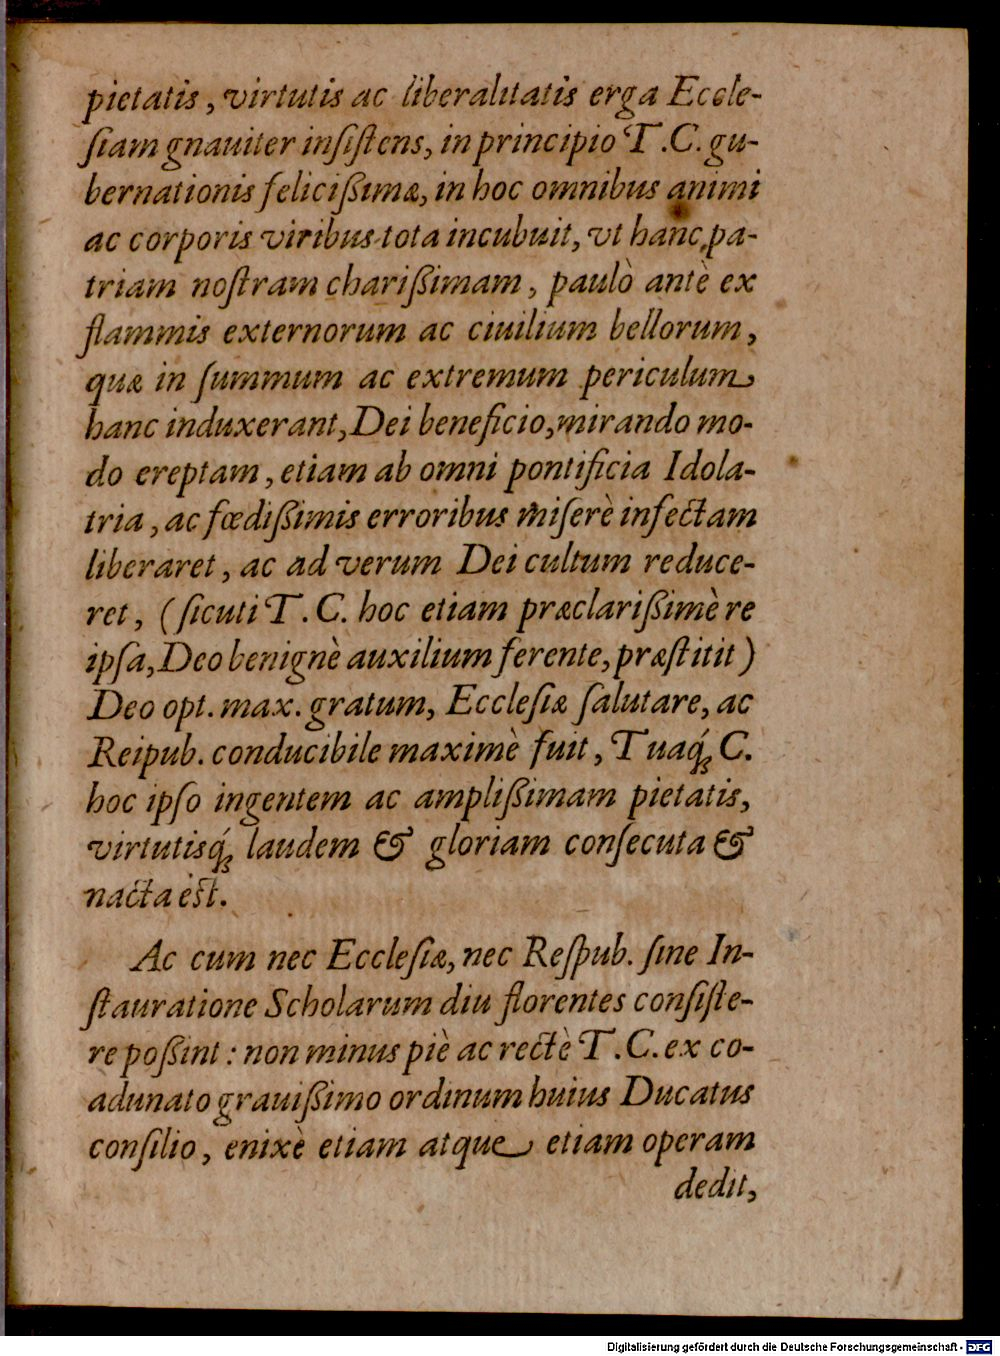 pietatis, virtutis ac liberalitatis erga Eccle-
ſiam gnauiter inſiſtens, in principio T. C. gu-
bernationis feliciſsimæ, in hoc omnibus animi
ac corporis viribus tota incubuit, vt hanc pa-
triam noſtram chariſsimam, paulò antè ex
flammis externorum ac ciuilium bellorum,
quæ in ſummum ac extremum periculum
hanc induxerant, Dei beneficio, mirando mo-
do ereptam, etiam ab omni pontificia Idola-
tria, ac fœdiſsimis erroribus miſerè infectam
liberaret, ac ad verum Dei cultum reduce-
ret, (ſicuti T. C. hoc etiam præclariſsimè re
ipſa, Deo benignè auxilium ferente, præſtitit)
Deo opt. max. gratum, Eccleſiæ ſalutare, ac
Reipub. conducibile maximè fuit, Tuaq́ꝫ C.
hoc ipſo ingentem ac ampliſsimam pietatis,
virtutisq́ꝫ laudem & gloriam conſecuta &
nacta eſt.
Ac cum nec Eccleſiæ, nec Reſpub. ſine In-
ſtauratione Scholarum diu florentes conſiſte-
re poſsint: non minus piè ac rectè T. C. ex co-
adunato grauiſsimo ordinum huius Ducatus
conſilio, enixè etiam atque etiam operam
dedit,
Digitalisierung gefördert durch die Deutsche Forschungsgemeinschaft - DFG